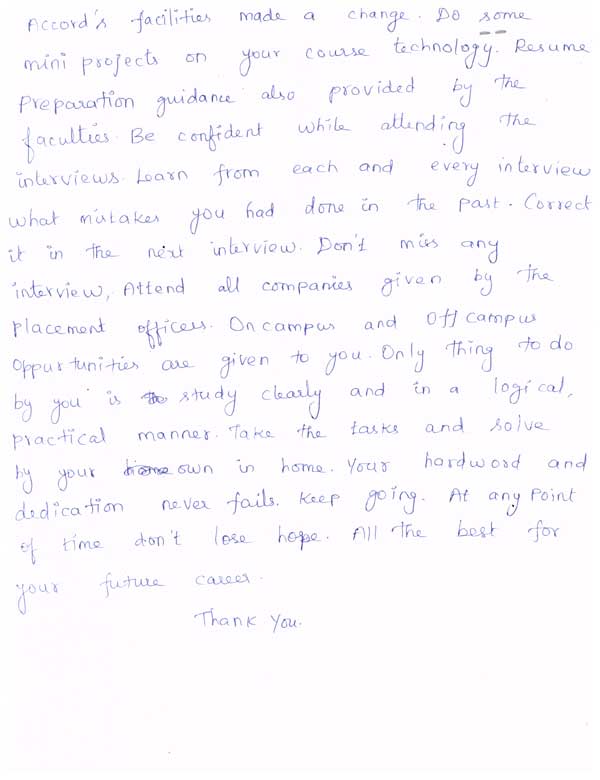 Accord's facilities made a change. Do some
mini projects on your course technology. Resume
Preparation guidance also provided by the
faculties. Be confident while attending the
interviews. Learn from each and every interview
what mistakes you had done in the past. Correct
it in the next interview. Don't miss any
interview, Attend all companies given by the
placement officers. On campus and Off campus
Oppurtunities are given to you. Only thing to do
by you is study clearly and in a logical,
practical manner. Take the tasks and solve
by your own in home. Your hardword and
dedication never fails. Keep going. At any point
of time don't lose hope. All the best for
your future career.
Thank You.